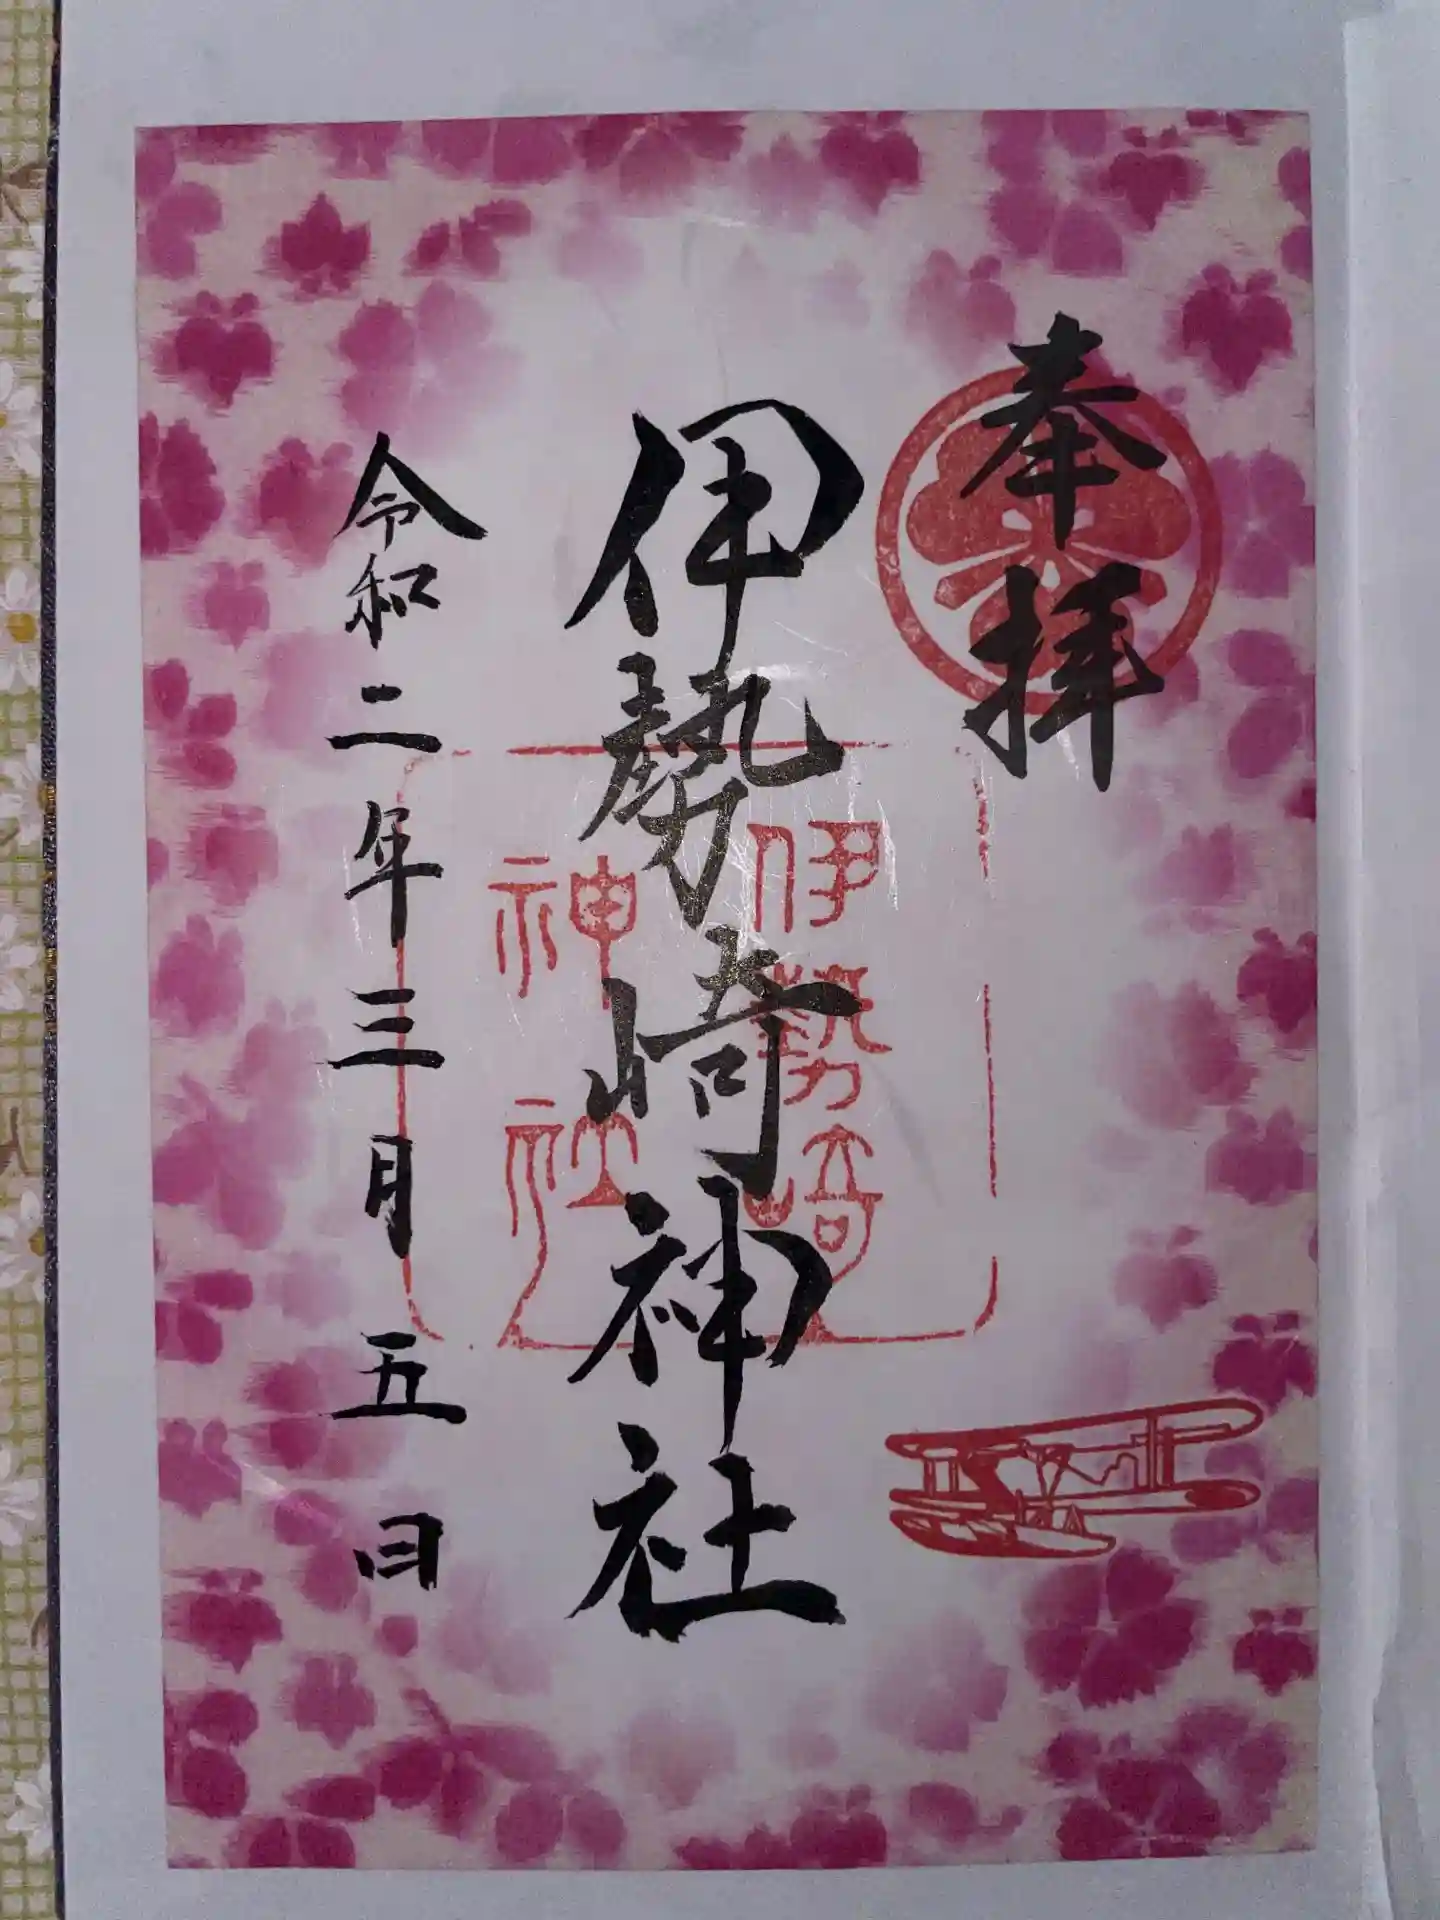 奉拝
伊勢崎神社
伊勢崎
神社
令和二年三月五日